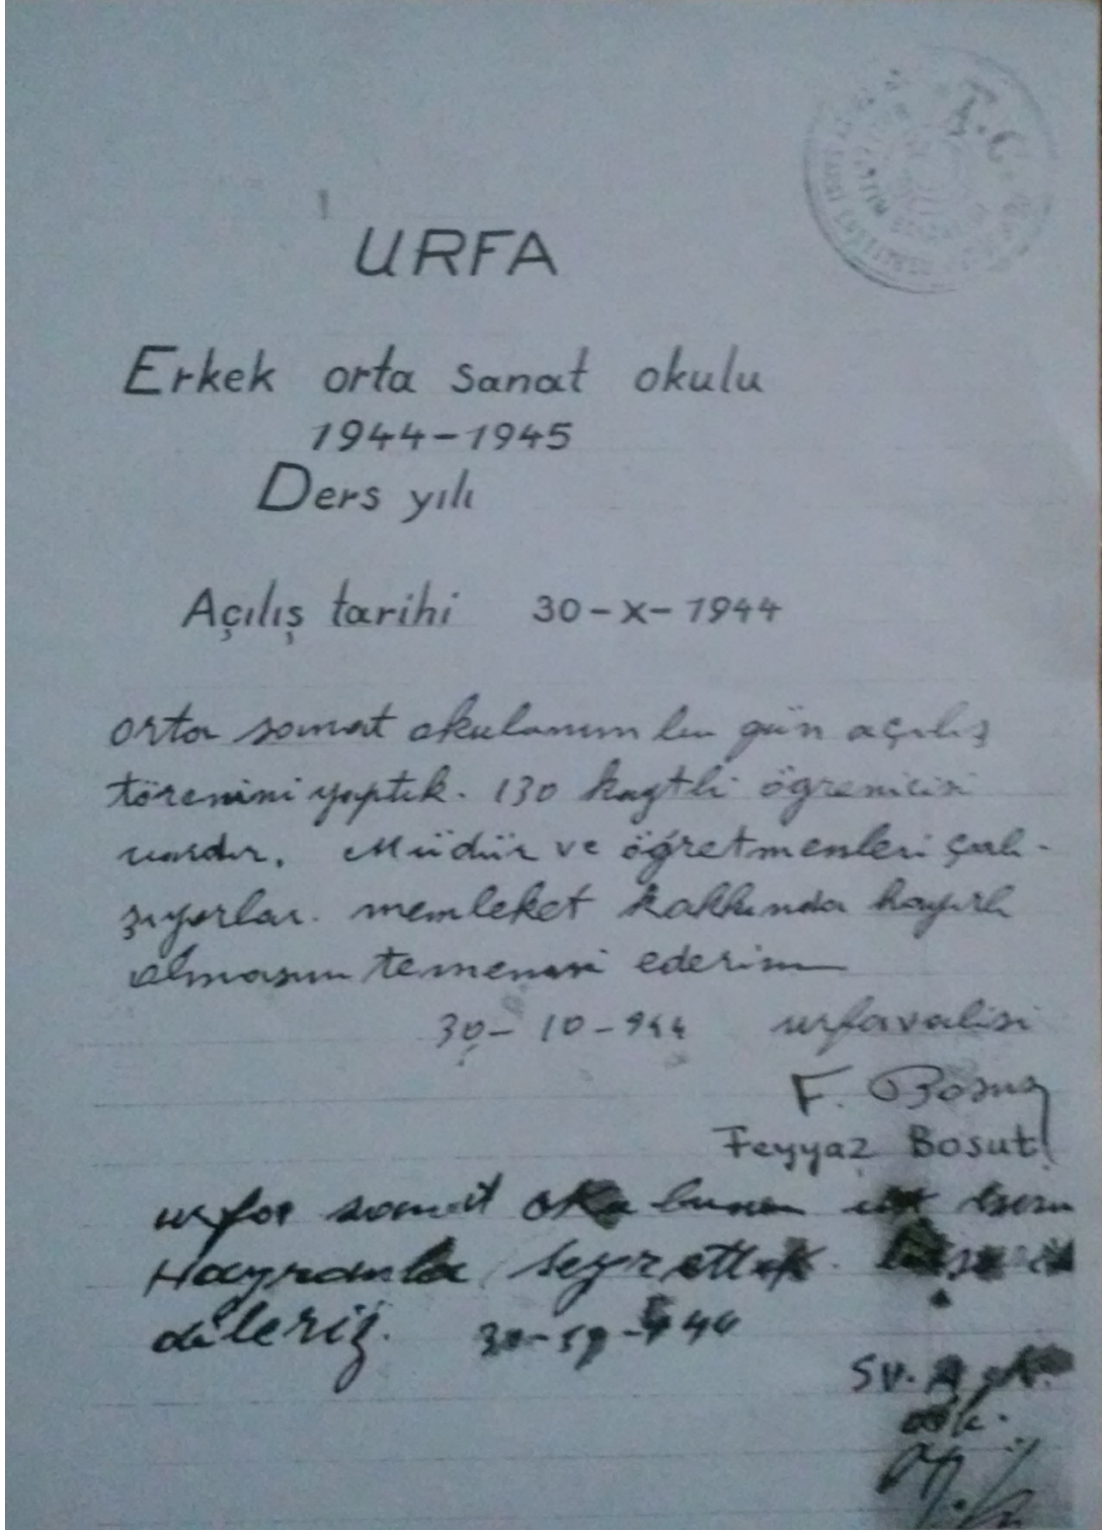 T.C.
URFA
Erkek orta sanat okulu
1944-1945
Ders yılı
Açılış tarihi 30-X-1944
orta sanat okulunun bu gün açılış
törenini yaptık. 130 kaytlı öğrenicisi
vardır. Müdür ve öğretmenleri çalı-
şıyorlar. memleket hakkında hayırlı
olmasını temenni ederim
30-10-944 urfa valisi
F. Bosut
Feyyaz Bosut
urfa sanat okulunun
Hayranla seyrettik.
dileriz. 30-10-944